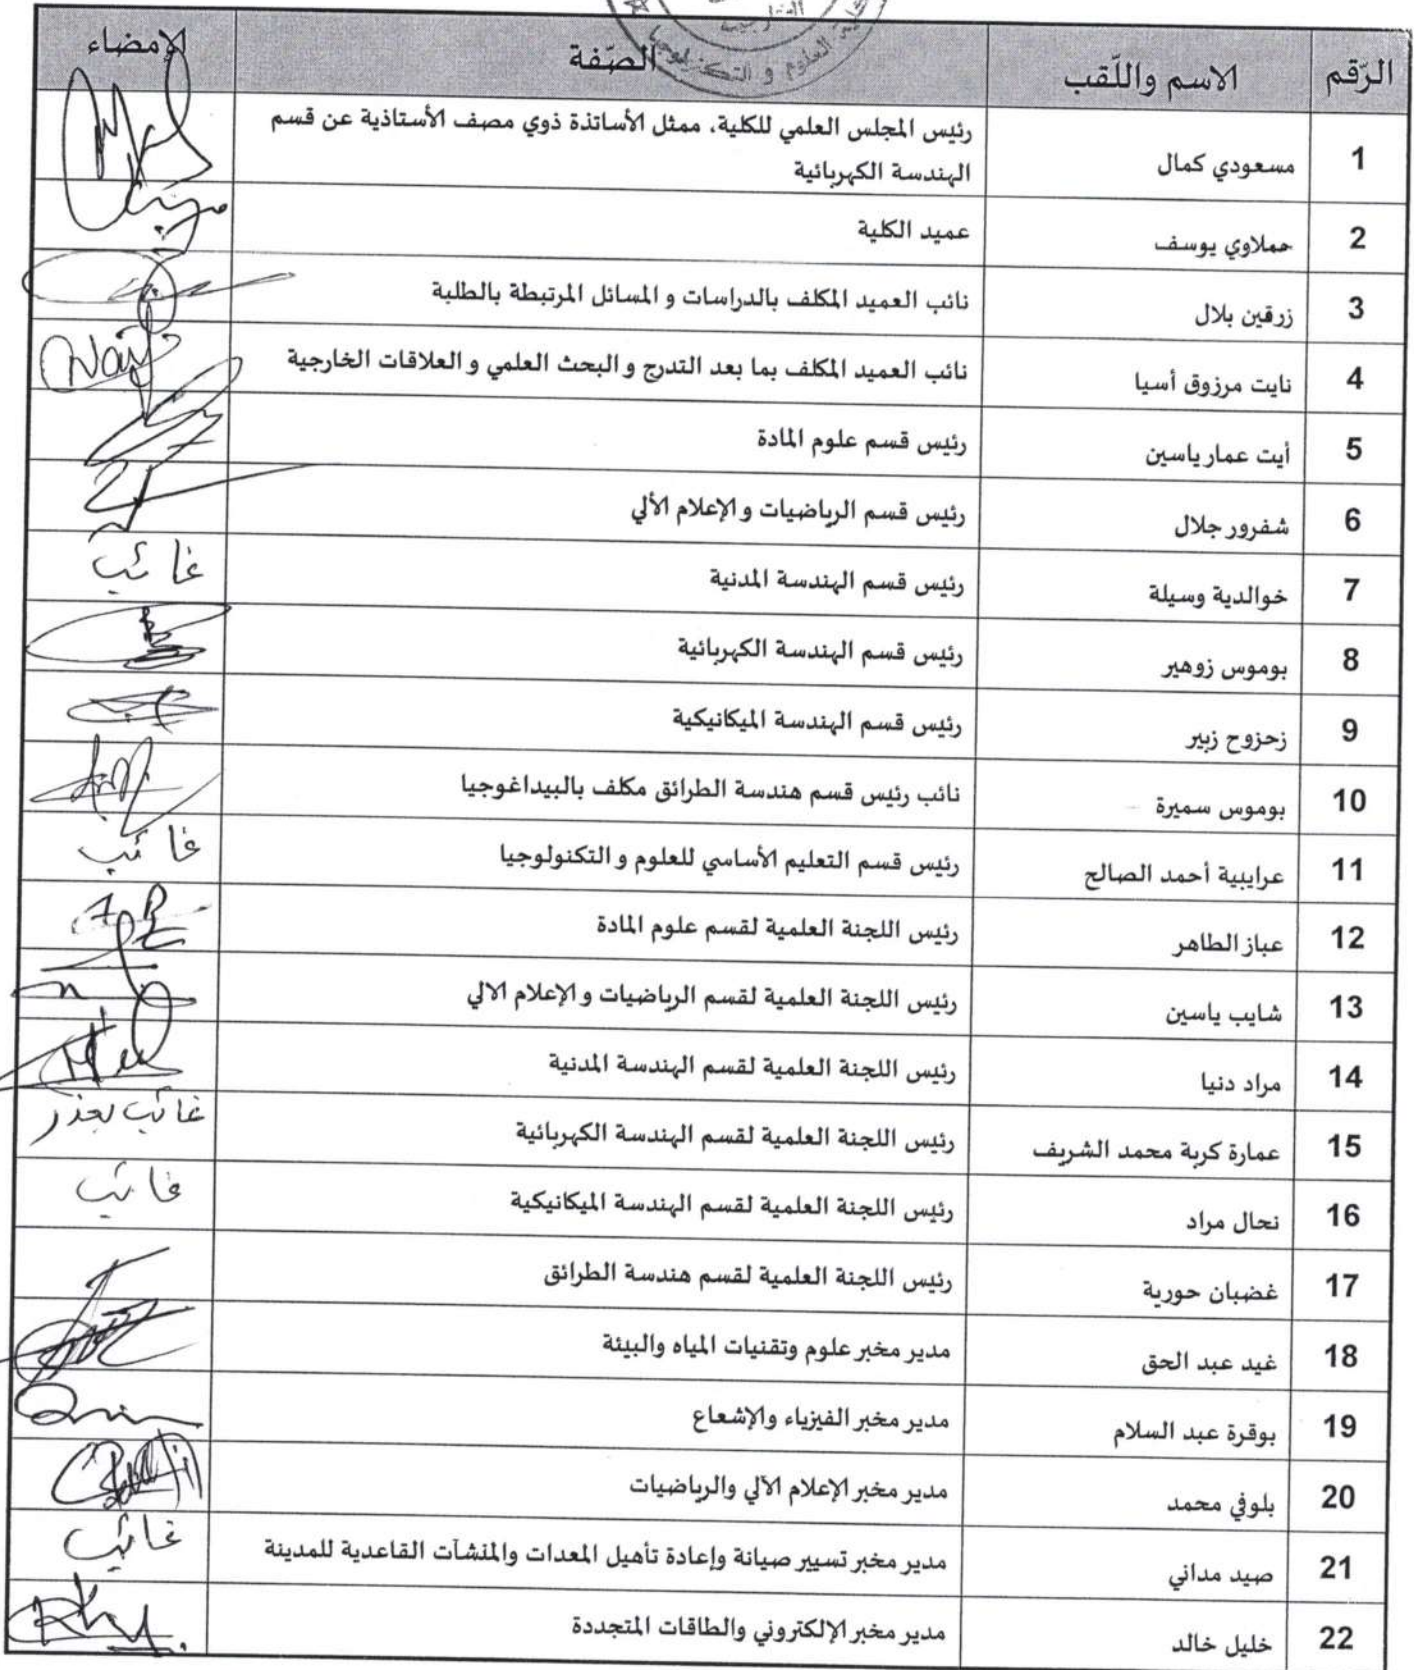 الرّقم الاسم واللّقب الصّفة الإمضاء
1 مسعودي كمال رئيس المجلس العلمي للكلية، ممثل الأساتذة ذوي مصف الأستاذية عن قسم
الهندسة الكهربائية
2 حملاوي يوسف عميد الكلية
3 زرقين بلال نائب العميد المكلف بالدراسات و المسائل المرتبطة بالطلبة
4 نايت مرزوق أسيا نائب العميد المكلف بما بعد التدرج و البحث العلمي و العلاقات الخارجية
5 أيت عمار ياسين رئيس قسم علوم المادة
6 شفرور جلال رئيس قسم الرياضيات و الإعلام الألي
7 خوالدية وسيلة رئيس قسم الهندسة المدنية غائب
8 بوموس زوهير رئيس قسم الهندسة الكهربائية
9 زحزوح زبير رئيس قسم الهندسة الميكانيكية
10 بوموس سميرة نائب رئيس قسم هندسة الطرائق مكلف بالبيداغوجيا
11 عرايبية أحمد الصالح رئيس قسم التعليم الأساسي للعلوم و التكنولوجيا غائب
12 عباز الطاهر رئيس اللجنة العلمية لقسم علوم المادة
13 شايب ياسين رئيس اللجنة العلمية لقسم الرياضيات و الإعلام الالي
14 مراد دنيا رئيس اللجنة العلمية لقسم الهندسة المدنية
15 عمارة كربة محمد الشريف رئيس اللجنة العلمية لقسم الهندسة الكهربائية غائب بعذر
16 نحال مراد رئيس اللجنة العلمية لقسم الهندسة الميكانيكية غائب
17 غضبان حورية رئيس اللجنة العلمية لقسم هندسة الطرائق
18 غيد عبد الحق مدير مخبر علوم وتقنيات المياه والبيئة
19 بوقرة عبد السلام مدير مخبر الفيزياء والإشعاع
20 بلوفي محمد مدير مخبر الإعلام الآلي والرياضيات
21 صيد مداني مدير مخبر تسيير صيانة وإعادة تأهيل المعدات والمنشآت القاعدية للمدينة غائب
22 خليل خالد مدير مخبر الإلكتروني والطاقات المتجددة